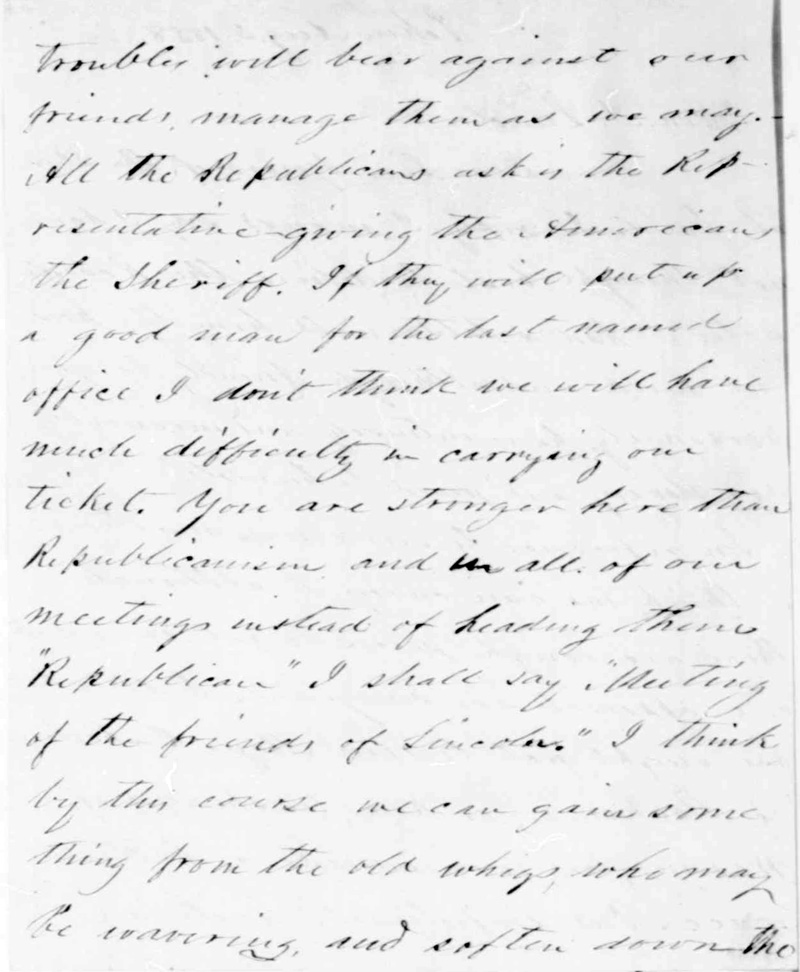 troubles will bear against our
friends, manage them as we may.-
All the Republicans ask is the Rep-
resentative-giving the Americans
the Sheriff. If they will put up
a good man for the last named
office I don't think we will have
much difficulty in carrying our
ticket. You are stronger here than
Republicanism and in all of our
meetings instead of heading them
"Republican" I shall say "Meeting
of the friends of Lincoln." I think
by this course we can gain some
thing from the old whigs, who may
be wavering, and soften down the